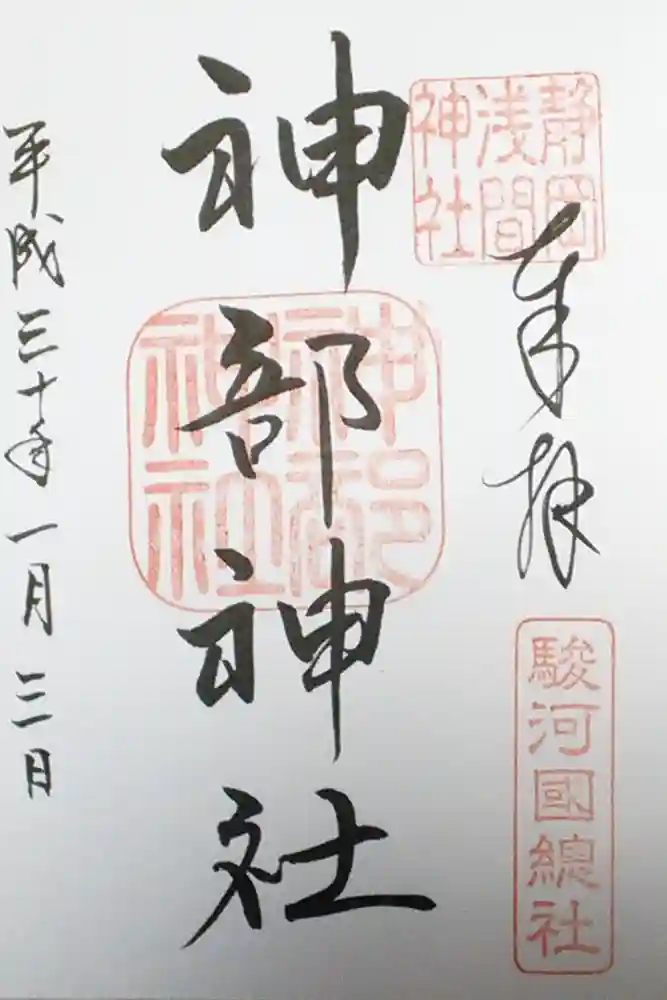 静岡
浅間
神社
奉拝
駿河國總社
神部神社
神部
神社
平成三十年一月三日